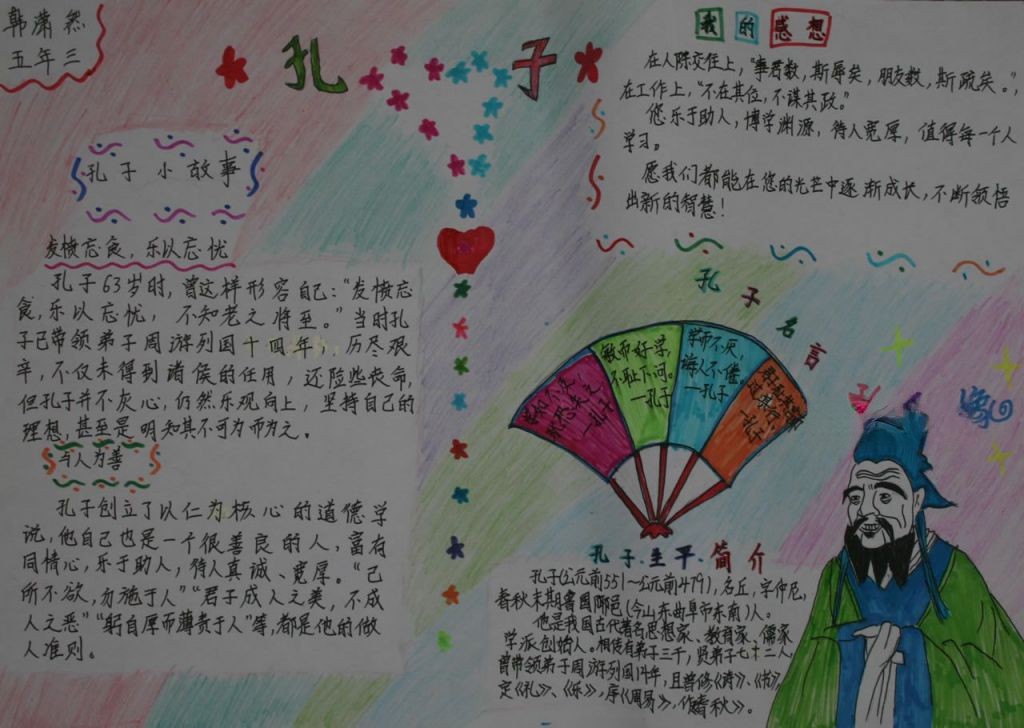 韩潇然
五年三
孔子
孔子小故事
发愤忘食，乐以忘忧
孔子63岁时，曾这样形容自己：“发愤忘
食，乐以忘忧，不知老之将至。”当时孔
子已带领弟子周游列国十四年，历尽艰
辛，不仅未得到诸侯的任用，还险些丧命，
但孔子并不灰心，仍然乐观向上，坚持自己的
理想，甚至是明知其不可为而为之。
与人为善
孔子创立了以仁为核心的道德学
说，他自己也是一个很善良的人，富有
同情心，乐于助人，待人真诚、宽厚。“己
所不欲，勿施于人”“君子成人之美，不成
人之恶”“躬自厚而薄责于人”等，都是他的做
人准则。
我的感想
在人际交往上，“事君数，斯辱矣，朋友数，斯疏矣。”，
在工作上，“不在其位，不谋其政。”
您乐于助人，博学渊源，待人宽厚，值得每一个人
学习。
愿我们都能在您的光芒中逐渐成长，不断领悟
出新的智慧！
孔子名言
学如不及
犹恐失之
—孔子
敏而好学，
不耻下问。
—孔子
学而不厌，
诲人不倦。
—孔子
君子耻其言而
过其行。
—孔子
孔子像
孔子生平简介
孔子(公元前551～公元前479)，名丘，字仲尼，
春秋末期鲁国陬邑(今山东曲阜市东南)人。
他是我国古代著名思想家、教育家、儒家
学派创始人。相传有弟子三千，贤弟子七十二人，
曾带领弟子周游列国14年，且普修《诗》、《书》，
定《礼》、《乐》，序《周易》，作《春秋》。